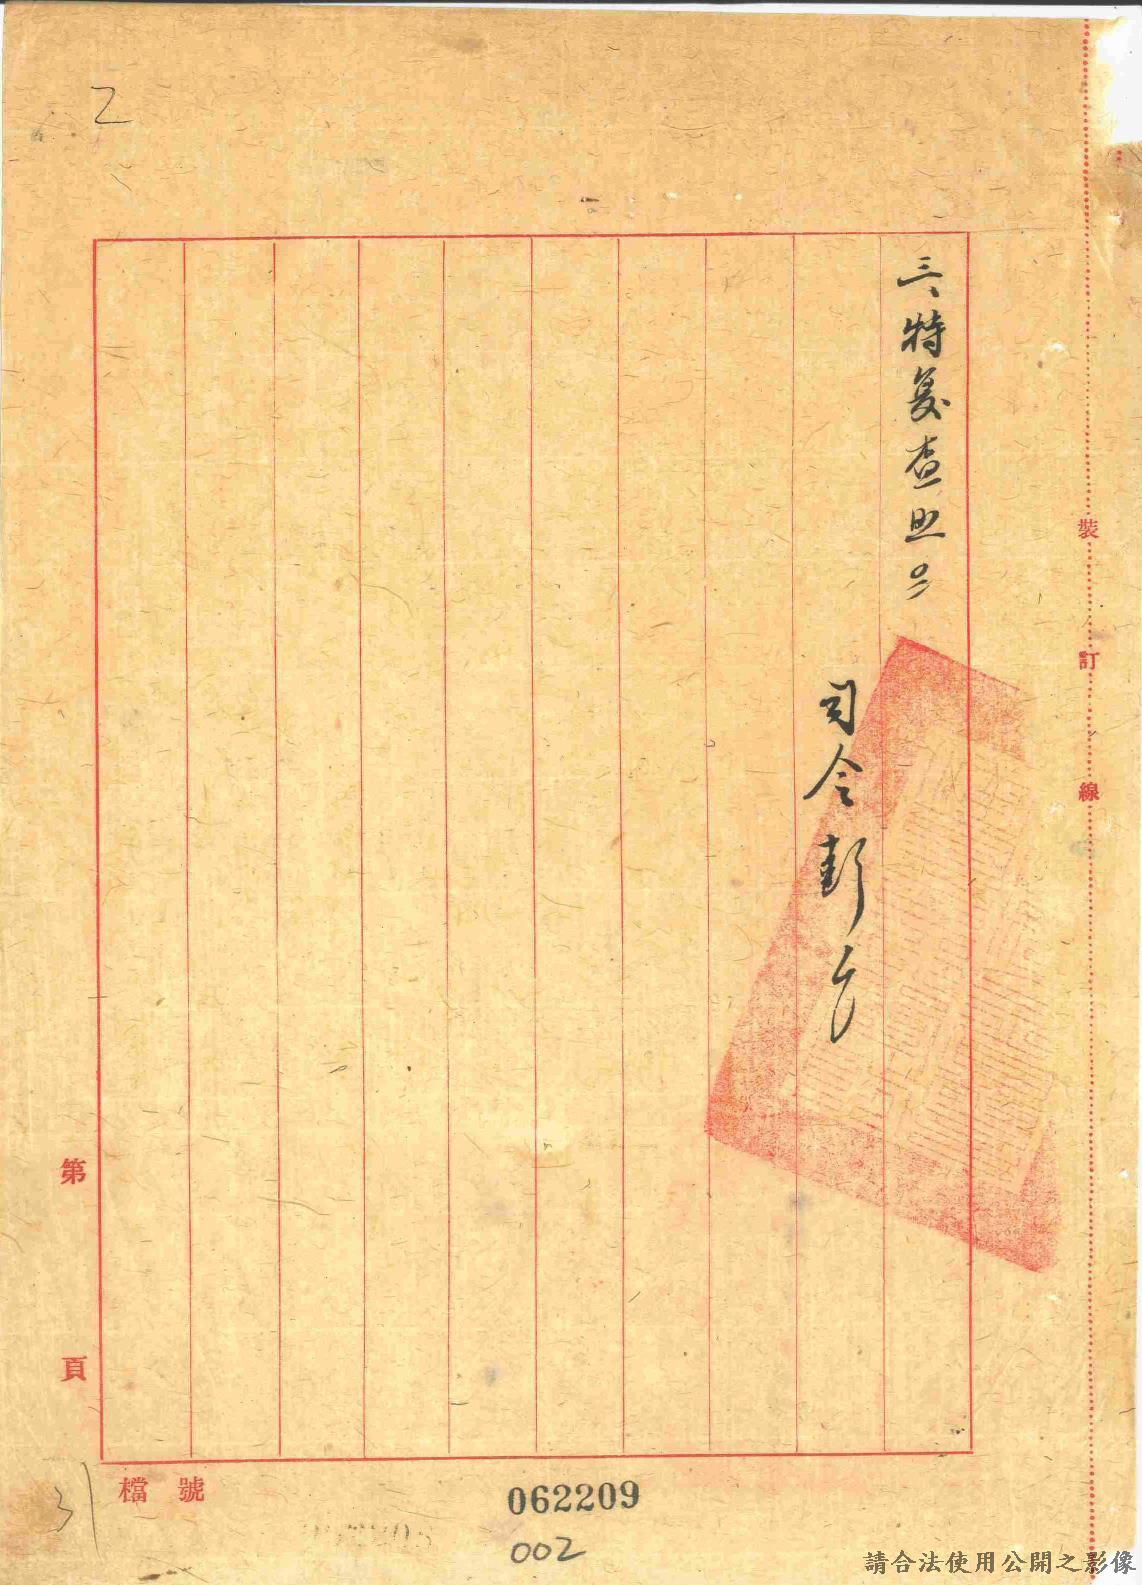 2
三、特复查照。
司令彭
裝
訂
線
第
頁
檔 號
31
062209
002
請合法使用公開之影像